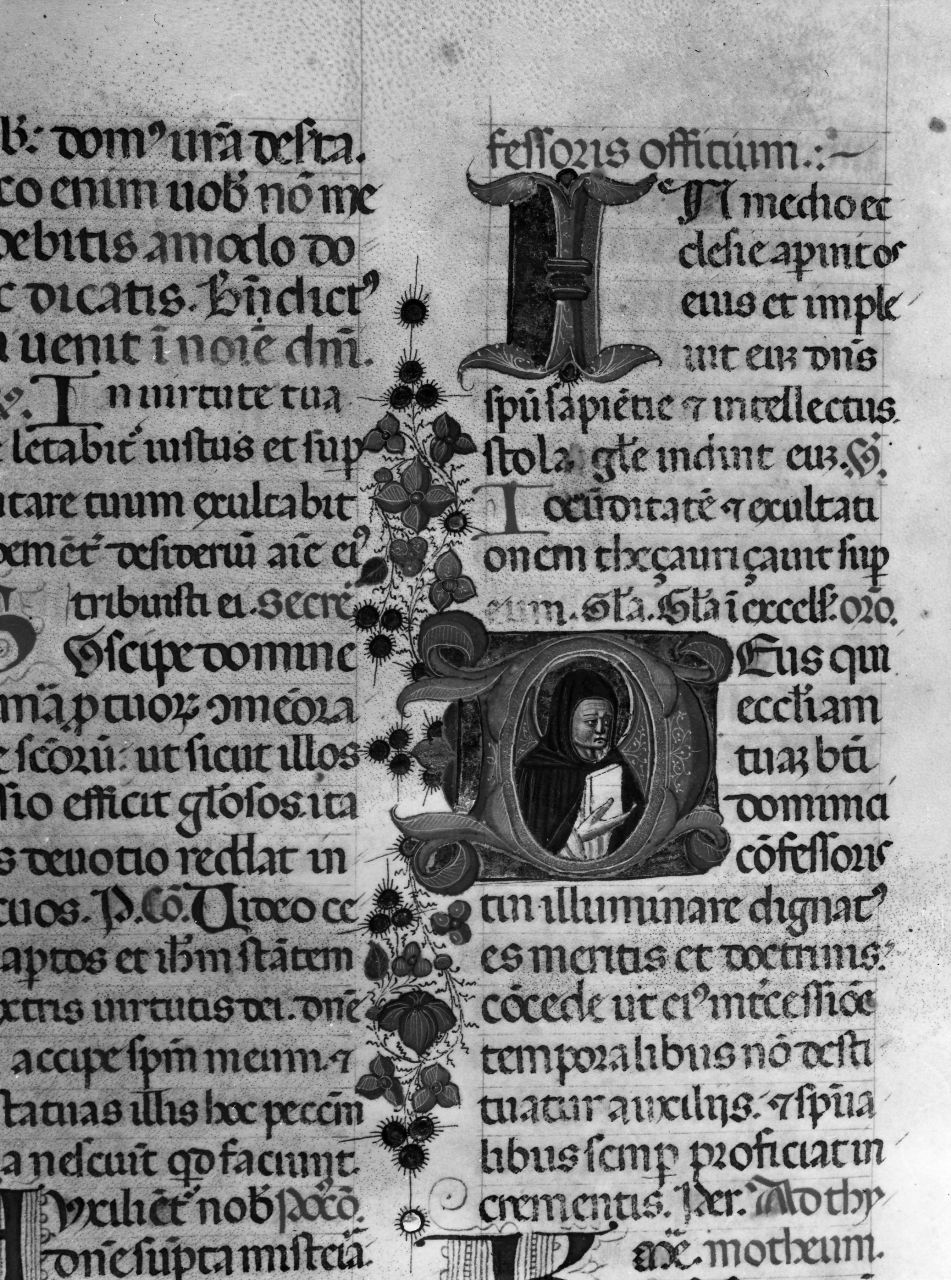 b᷎: dom᷒ ur̄a des̄ta.
co enim uob̄ nō me
debitis amodo do
c dicatis. Bn̄dict᷒
uenit ī noīe dn̄i.
In uirtute tua
letabit̄ iustus et sup̱
utare tuum exultabit
uement̄ desideriū aīe ei᷒
tribuisti ei. Secrē
Suscipe domine
p̱ tuoꝝ ↄmeōra
scōrū: ut sicut illos
sio efficit gl̄osos. ita
s deuotio reddat in
cuos. P. Cō. Uideo ce
aptos et ih̄m stātem
extris uirtutis dei. dn̄e
accipe sp̄m meum. ⁊
statuas illis hoc pecc̄m
nesciūt qđ faciunt.
Auxiliēt̄ nob̄ Po᷒cō.
dn̄e sūpta misteiā.
fessoris officium.:~
IN medio ec
clesie ap̱uit os
eius et imple
uit euꝫ dn̄s
spū sapiētie ⁊ intellectus.
stola gl̄e induit euꝫ. P̄s.
Iocūditatē ⁊ exultati
onem theçauriçauit sup̱
eum. Gl̄a. Gl̄a ī excels̄. orō.
DEus qui
eccl̄iam
tuaꝫ bt̄i
dominici
cōfessoris
tui illuminare dignat᷒
es meritis et doctrinis:
cōcede ut ei᷒ int̄cessiōe
temporalibus nō desti
tuatur auxilijs. ⁊ sp̄ua
libus semp̱ proficiat in
crementis. Per. Ad thy
motheum.